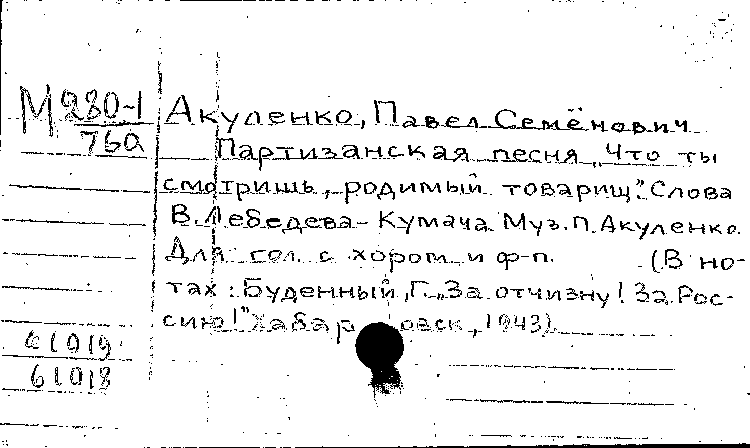 М 280-1
76а
Акуленко, Павел Семёнович
Партизанская песня „Что ты
смотришь, родимый товарищ". Слова
В. Лебедева-Кумача. Муз. П. Акуленко.
Для гол. с хором и ф-п. (В но-
тах: Буденный, Г. „За отчизну! За Рос-
сию!" Хабаровск, 1943).
61019
61018